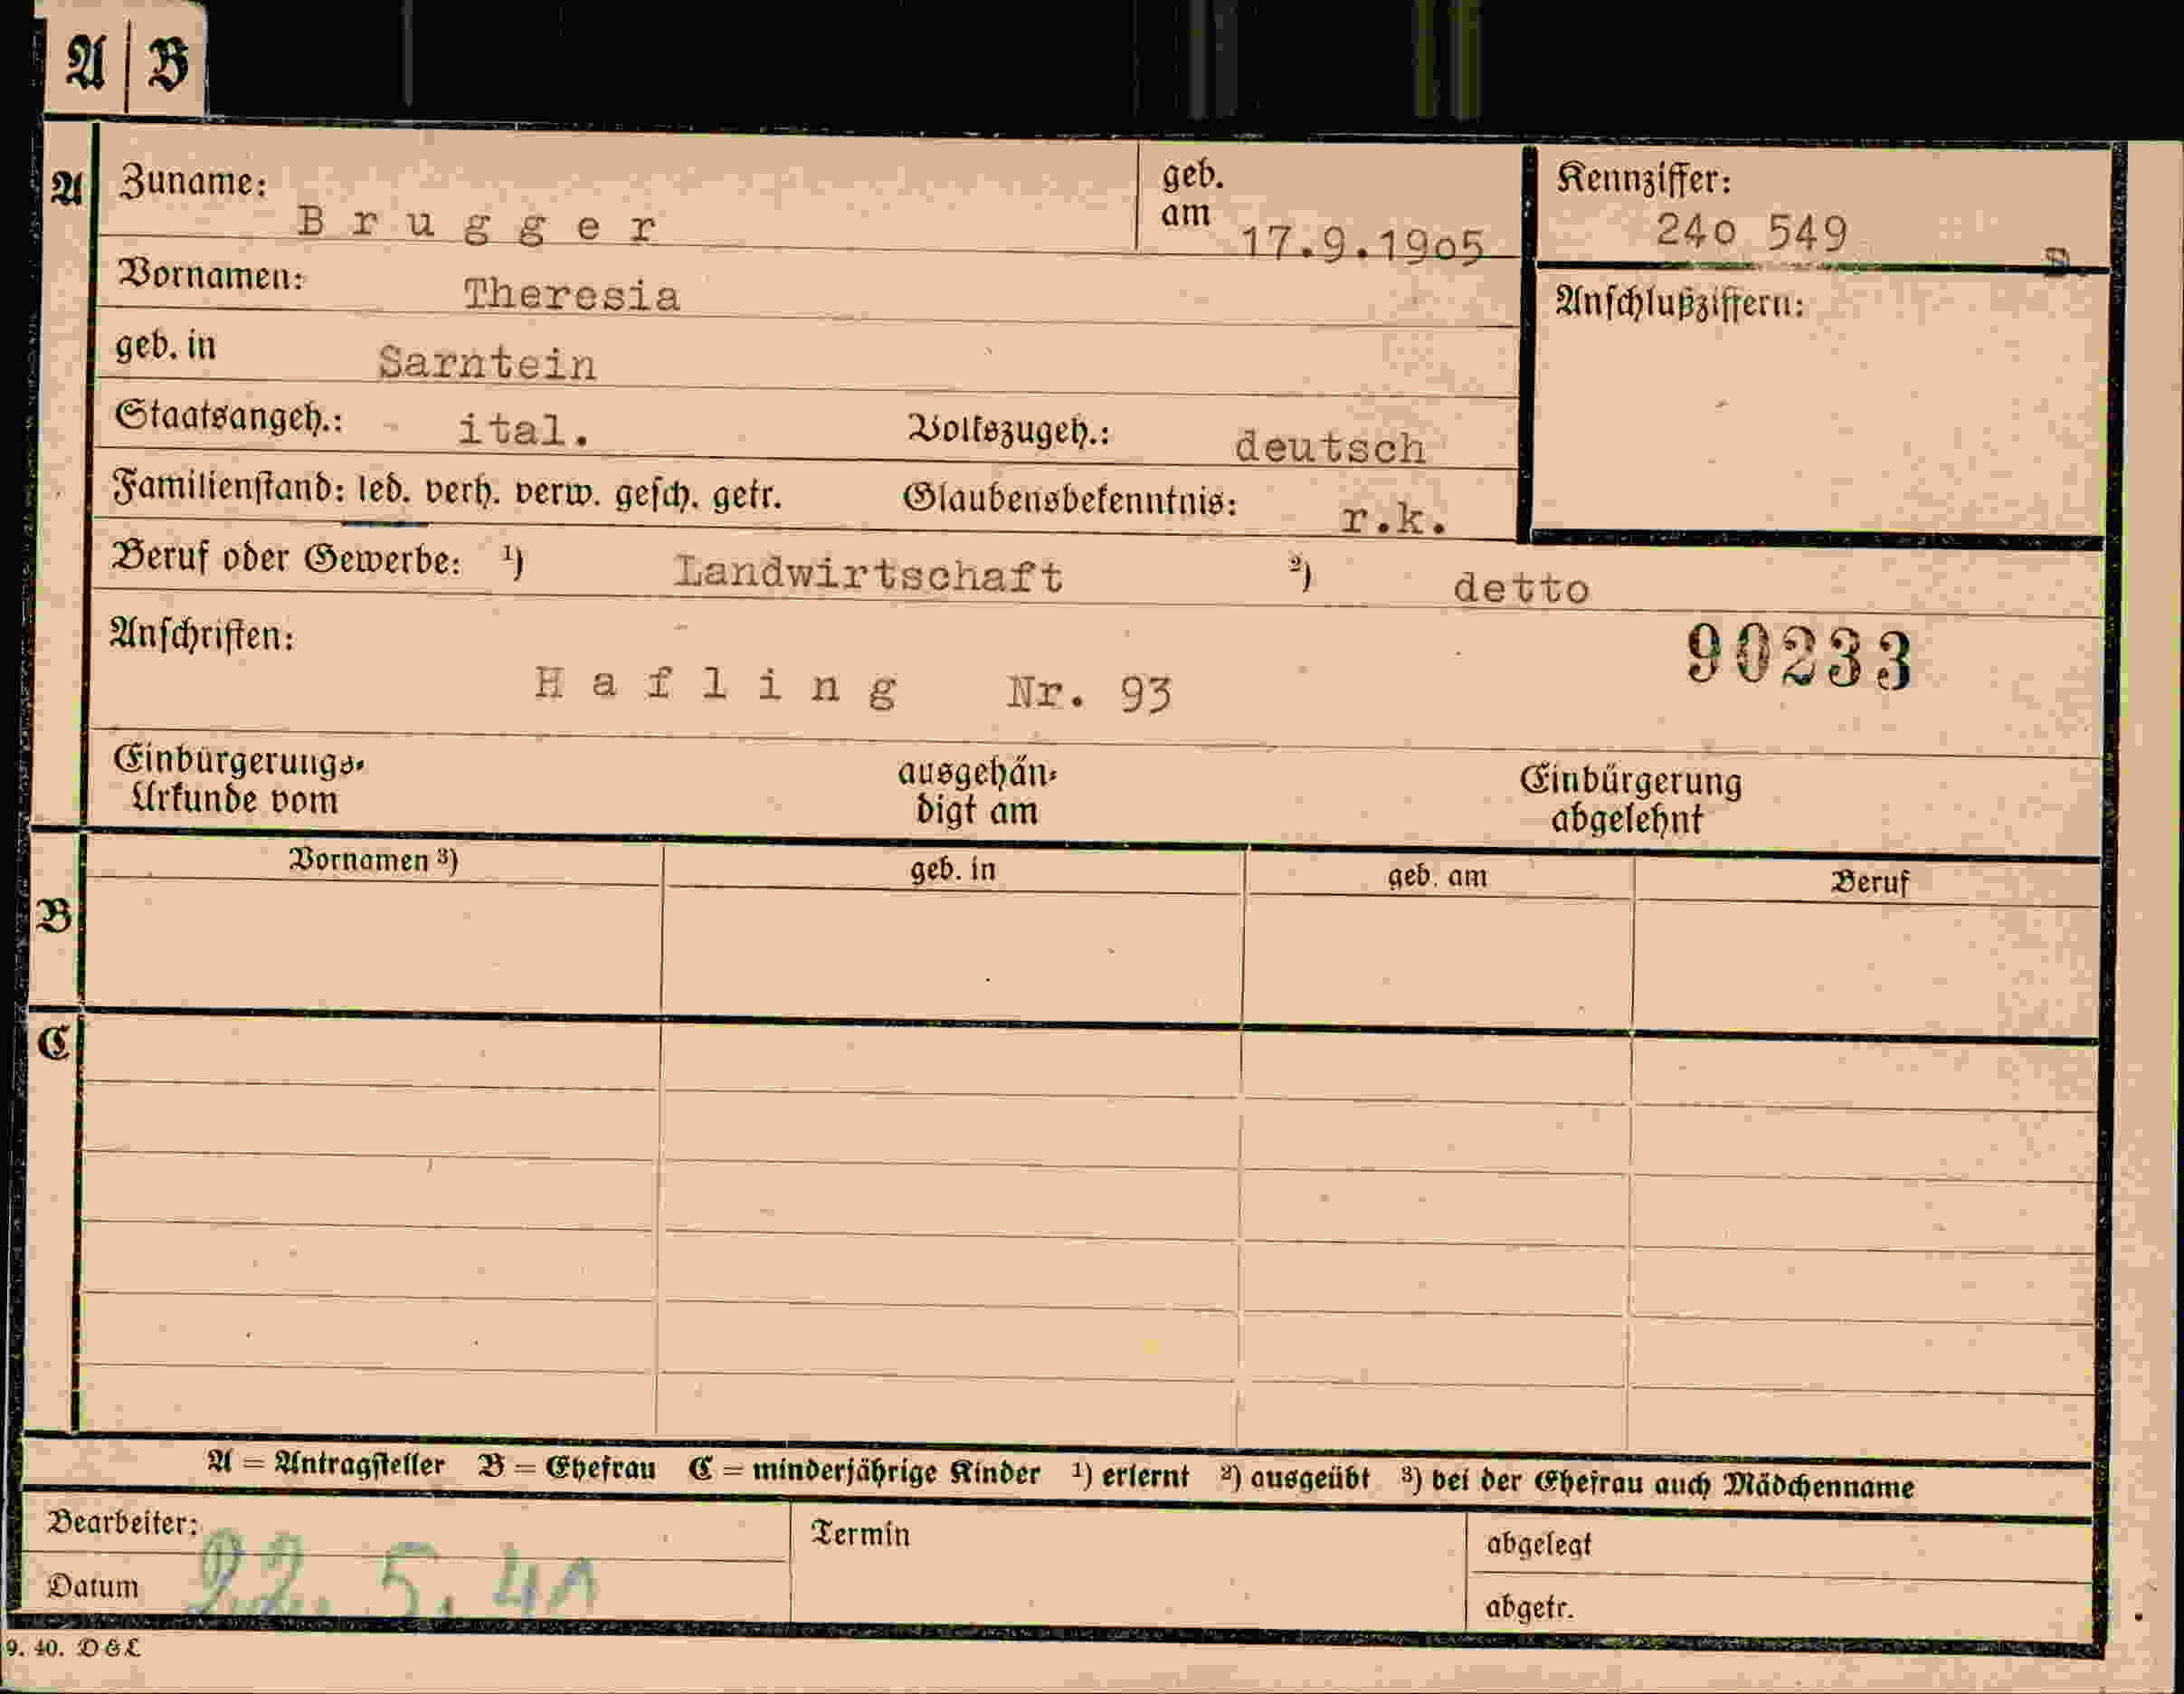 A | B
A Zuname: Brugger geb. am 17.9.19o5 Kennziffer: 24o 549
Vornamen: Theresia Anschlußziffern:
geb. in Sarntein
Staatsangeh.: ital. Volkszugeh.: deutsch
Familienstand: led. verh. verw. gesch. getr. Glaubensbekenntnis: r.k.
Beruf oder Gewerbe: ¹) Landwirtschaft ²) detto
Anschriften: 90233
Hafling Nr. 93
Einbürgerungs- ausgehän- Einbürgerung
Urkunde vom digt am abgelehnt
Vornamen ³) geb. in geb. am Beruf
B
C
A = Antragsteller B = Ehefrau C = minderjährige Kinder ¹) erlernt ²) ausgeübt ³) bei der Ehefrau auch Mädchenname
Bearbeiter: Termin abgelegt
Datum 22. 5. 41 abgetr.
9. 40.